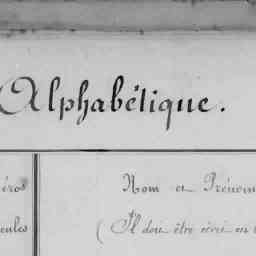 Alphabétique.
Nom et Prénom
( Il doit être écrit en